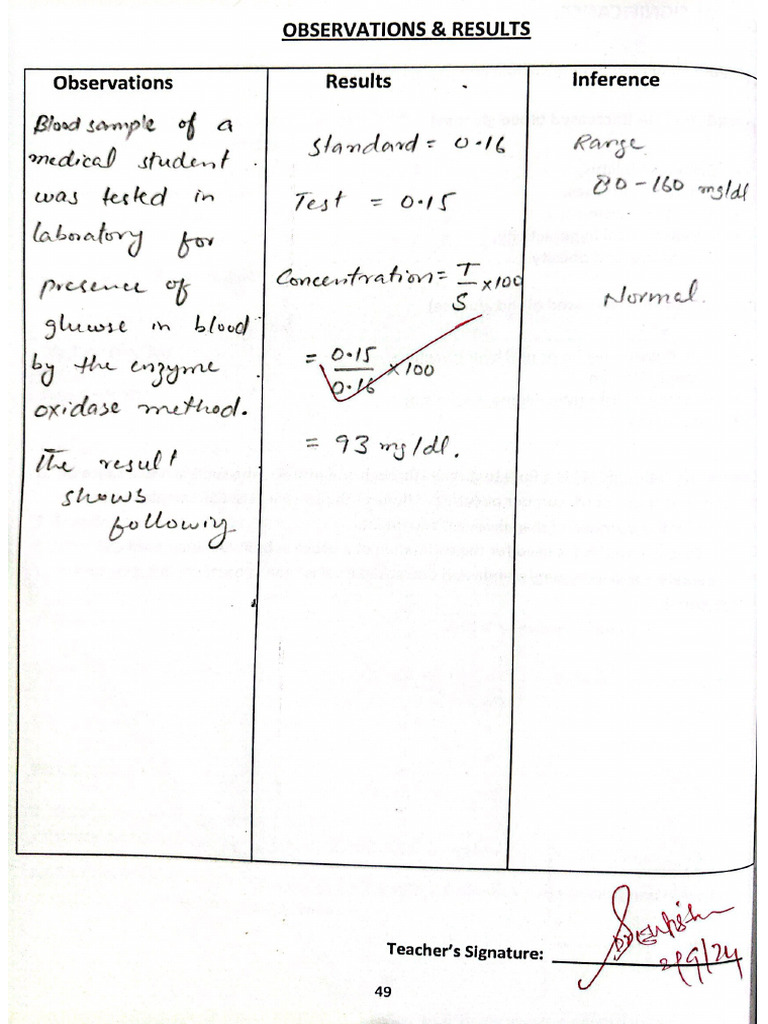 OBSERVATIONS & RESULTS
Observations
Blood sample of a
medical student
was tested in
laboratory for
presence of
glucose in blood
by the enzyme
oxidase method.
The result
shows
following
Results
Standard = 0.16
Test = 0.15
Concentration = T/S ×100
= 0.15/0.16 ×100
= 93 mg/dl.
Inference
Range
80-160 mg/dl
Normal.
Teacher's Signature:
49